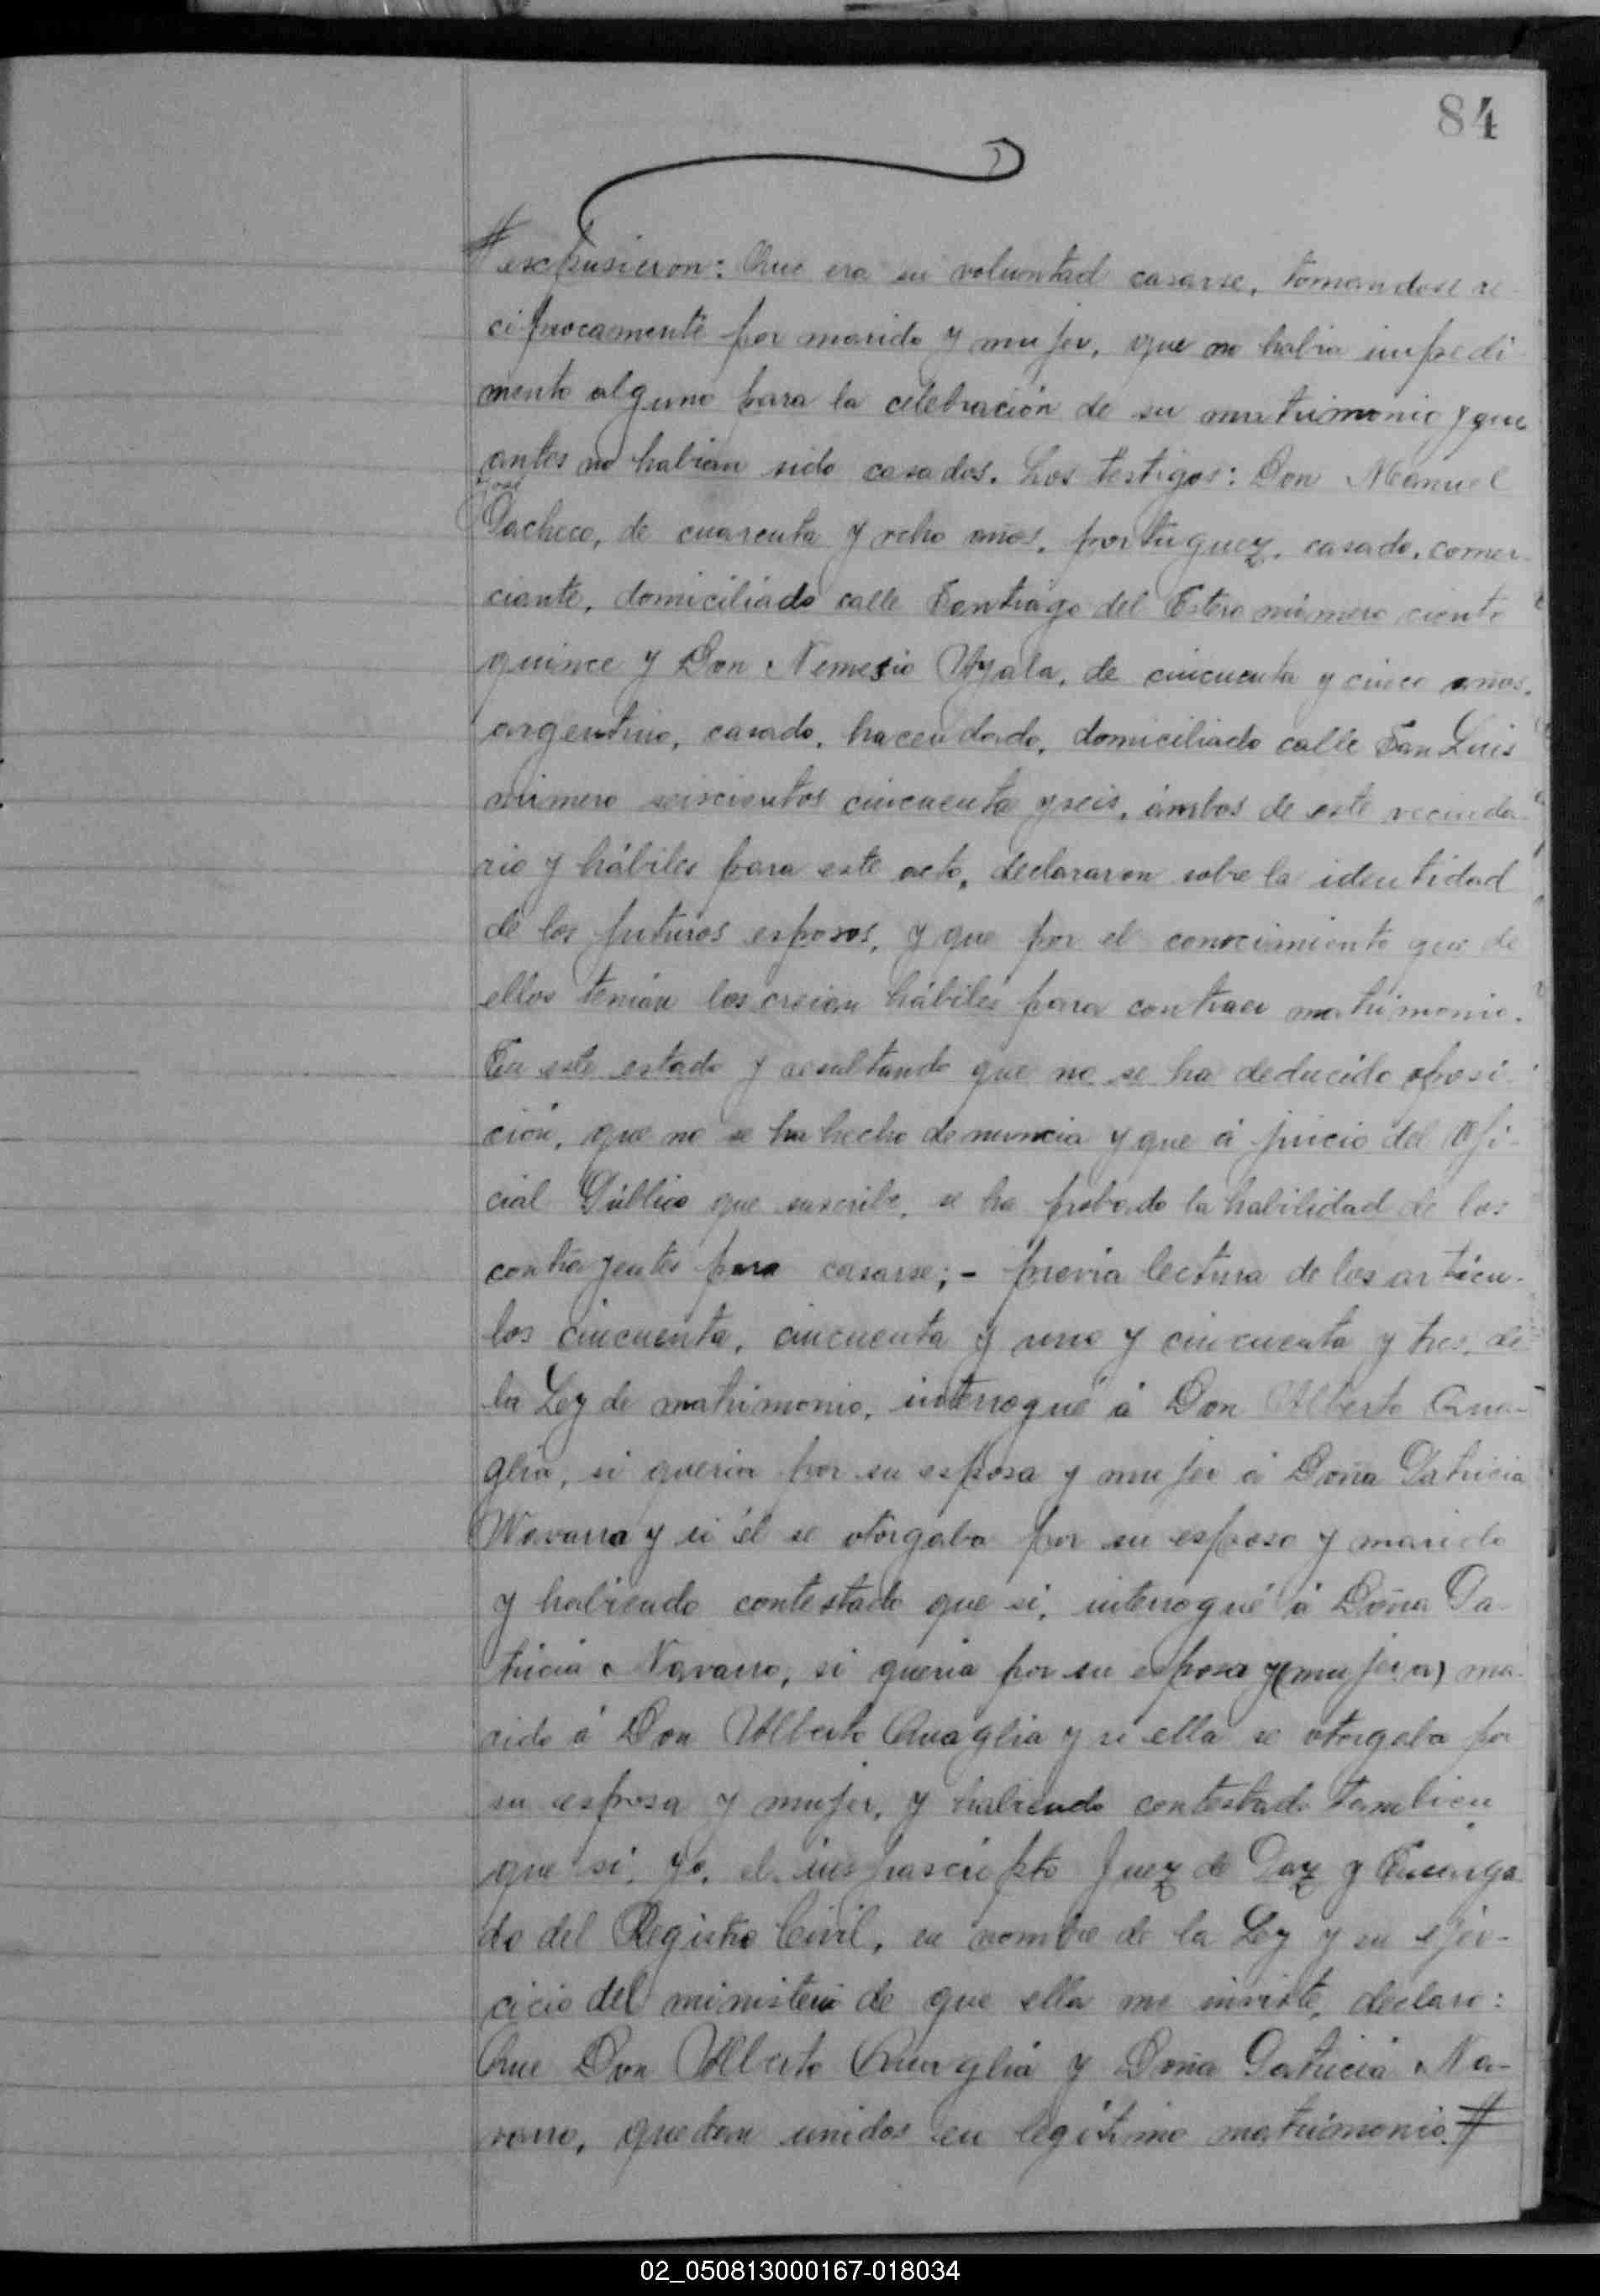 84
# expusieron: Que era su voluntad casarse, tomandose re-
ciprocamente por marido y mujer, que no habia impedi-
mento alguno para la celebración de su matrimonio y que
antes no habian sido casados. Los testigos: Don Manuel
José
Pacheco, de cuarenta y ocho años, portuguez, casado, comer-
ciante, domiciliado calle Santiago del Estero número ciento
quince y Don Nemesio Ayala, de cincuenta y cinco años,
argentino, casado, hacendado, domiciliado calle San Luis
número seiscientos cincuenta y seis, ámbos de este vecinda-
rio y hábiles para este acto, declararon sobre la identidad
de los futuros esposos, y que por el conocimiento que de
ellos tenian los creian hábiles para contraer matrimonio.
En este estado y resultando que no se ha deducido oposi-
ción, que no se ha hecho denuncia y que á juicio del Ofi-
cial Público que suscribe, se ha probado la habilidad de los
contrayentes para casarse; - previa lectura de los articu-
los cincuenta, cincuenta y uno y cincuenta y tres, de
la Ley de matrimonio, interrogué á Don Alberto Qua-
glia, si queria por su esposa y mujer á Doña Patricia
Navarro y si él se otorgaba por su esposo y marido
y habiendo contestado que si, interrogué á Doña Pa-
tricia Navarro, si queria por su esposo y (mujer a) ma-
rido á Don Alberto Quaglia y si ella se otorgaba por
su esposa y mujer, y habiendo contestado tambien
que si, yo, el infrascripto Juez de Paz y Encarga-
do del Registro Civil, en nombre de la Ley y en ejer-
cicio del ministerio de que ella me inviste, declaro:
Que Don Alberto Quaglia y Doña Patricia Na-
varro, quedan unidos en legítimo matrimonio. #
02_050813000167-018034